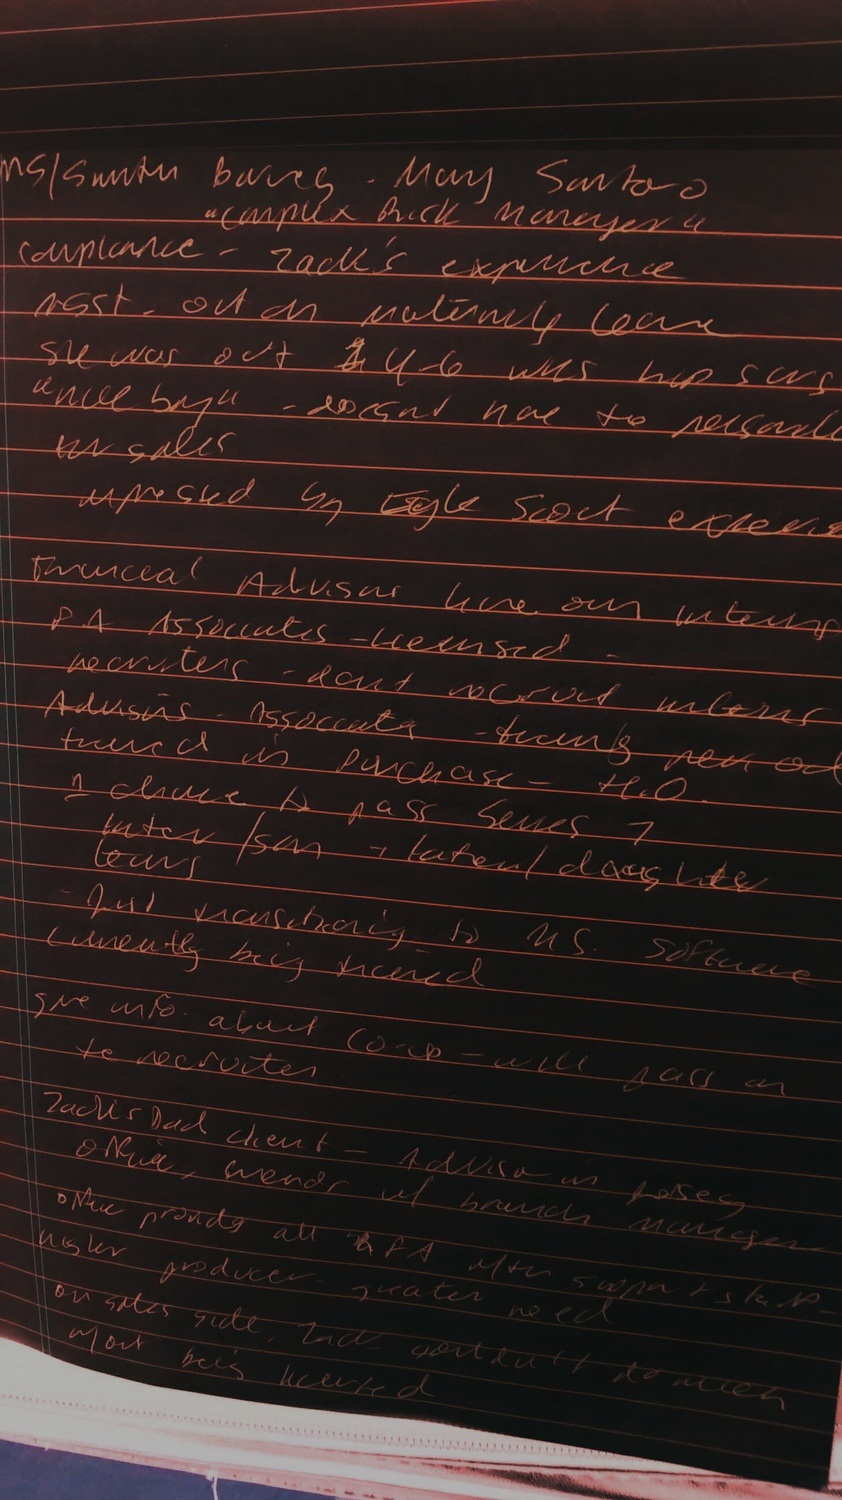 MS/Smith Barney - Mary Santoro
"Complex Risk Manager"
compliance - Zack's experience
Asst. out on maternity leave
She was out 4-6 wks hip surg
"nice boy" - doesn't have to
for sales
impressed by Eagle Scout experience
Financial Advisors hire own interns
FA Associates - licensed -
recruiters - don't recruit interns
Advisors - Associates - training
trained in Purchase - H.Q.
1 chance to pass Series 7
father/son + father/daughter
teams
- Just transitioning to MS. software
currently being trained
give info. about co-op - will pass on
to recruiter
Zack's Dad client - Advisor in
office, friends w/ branch manager
office provides all FA with support staff -
higher producer - greater need
on sales side, Zack couldn't do much
w/out being licensed